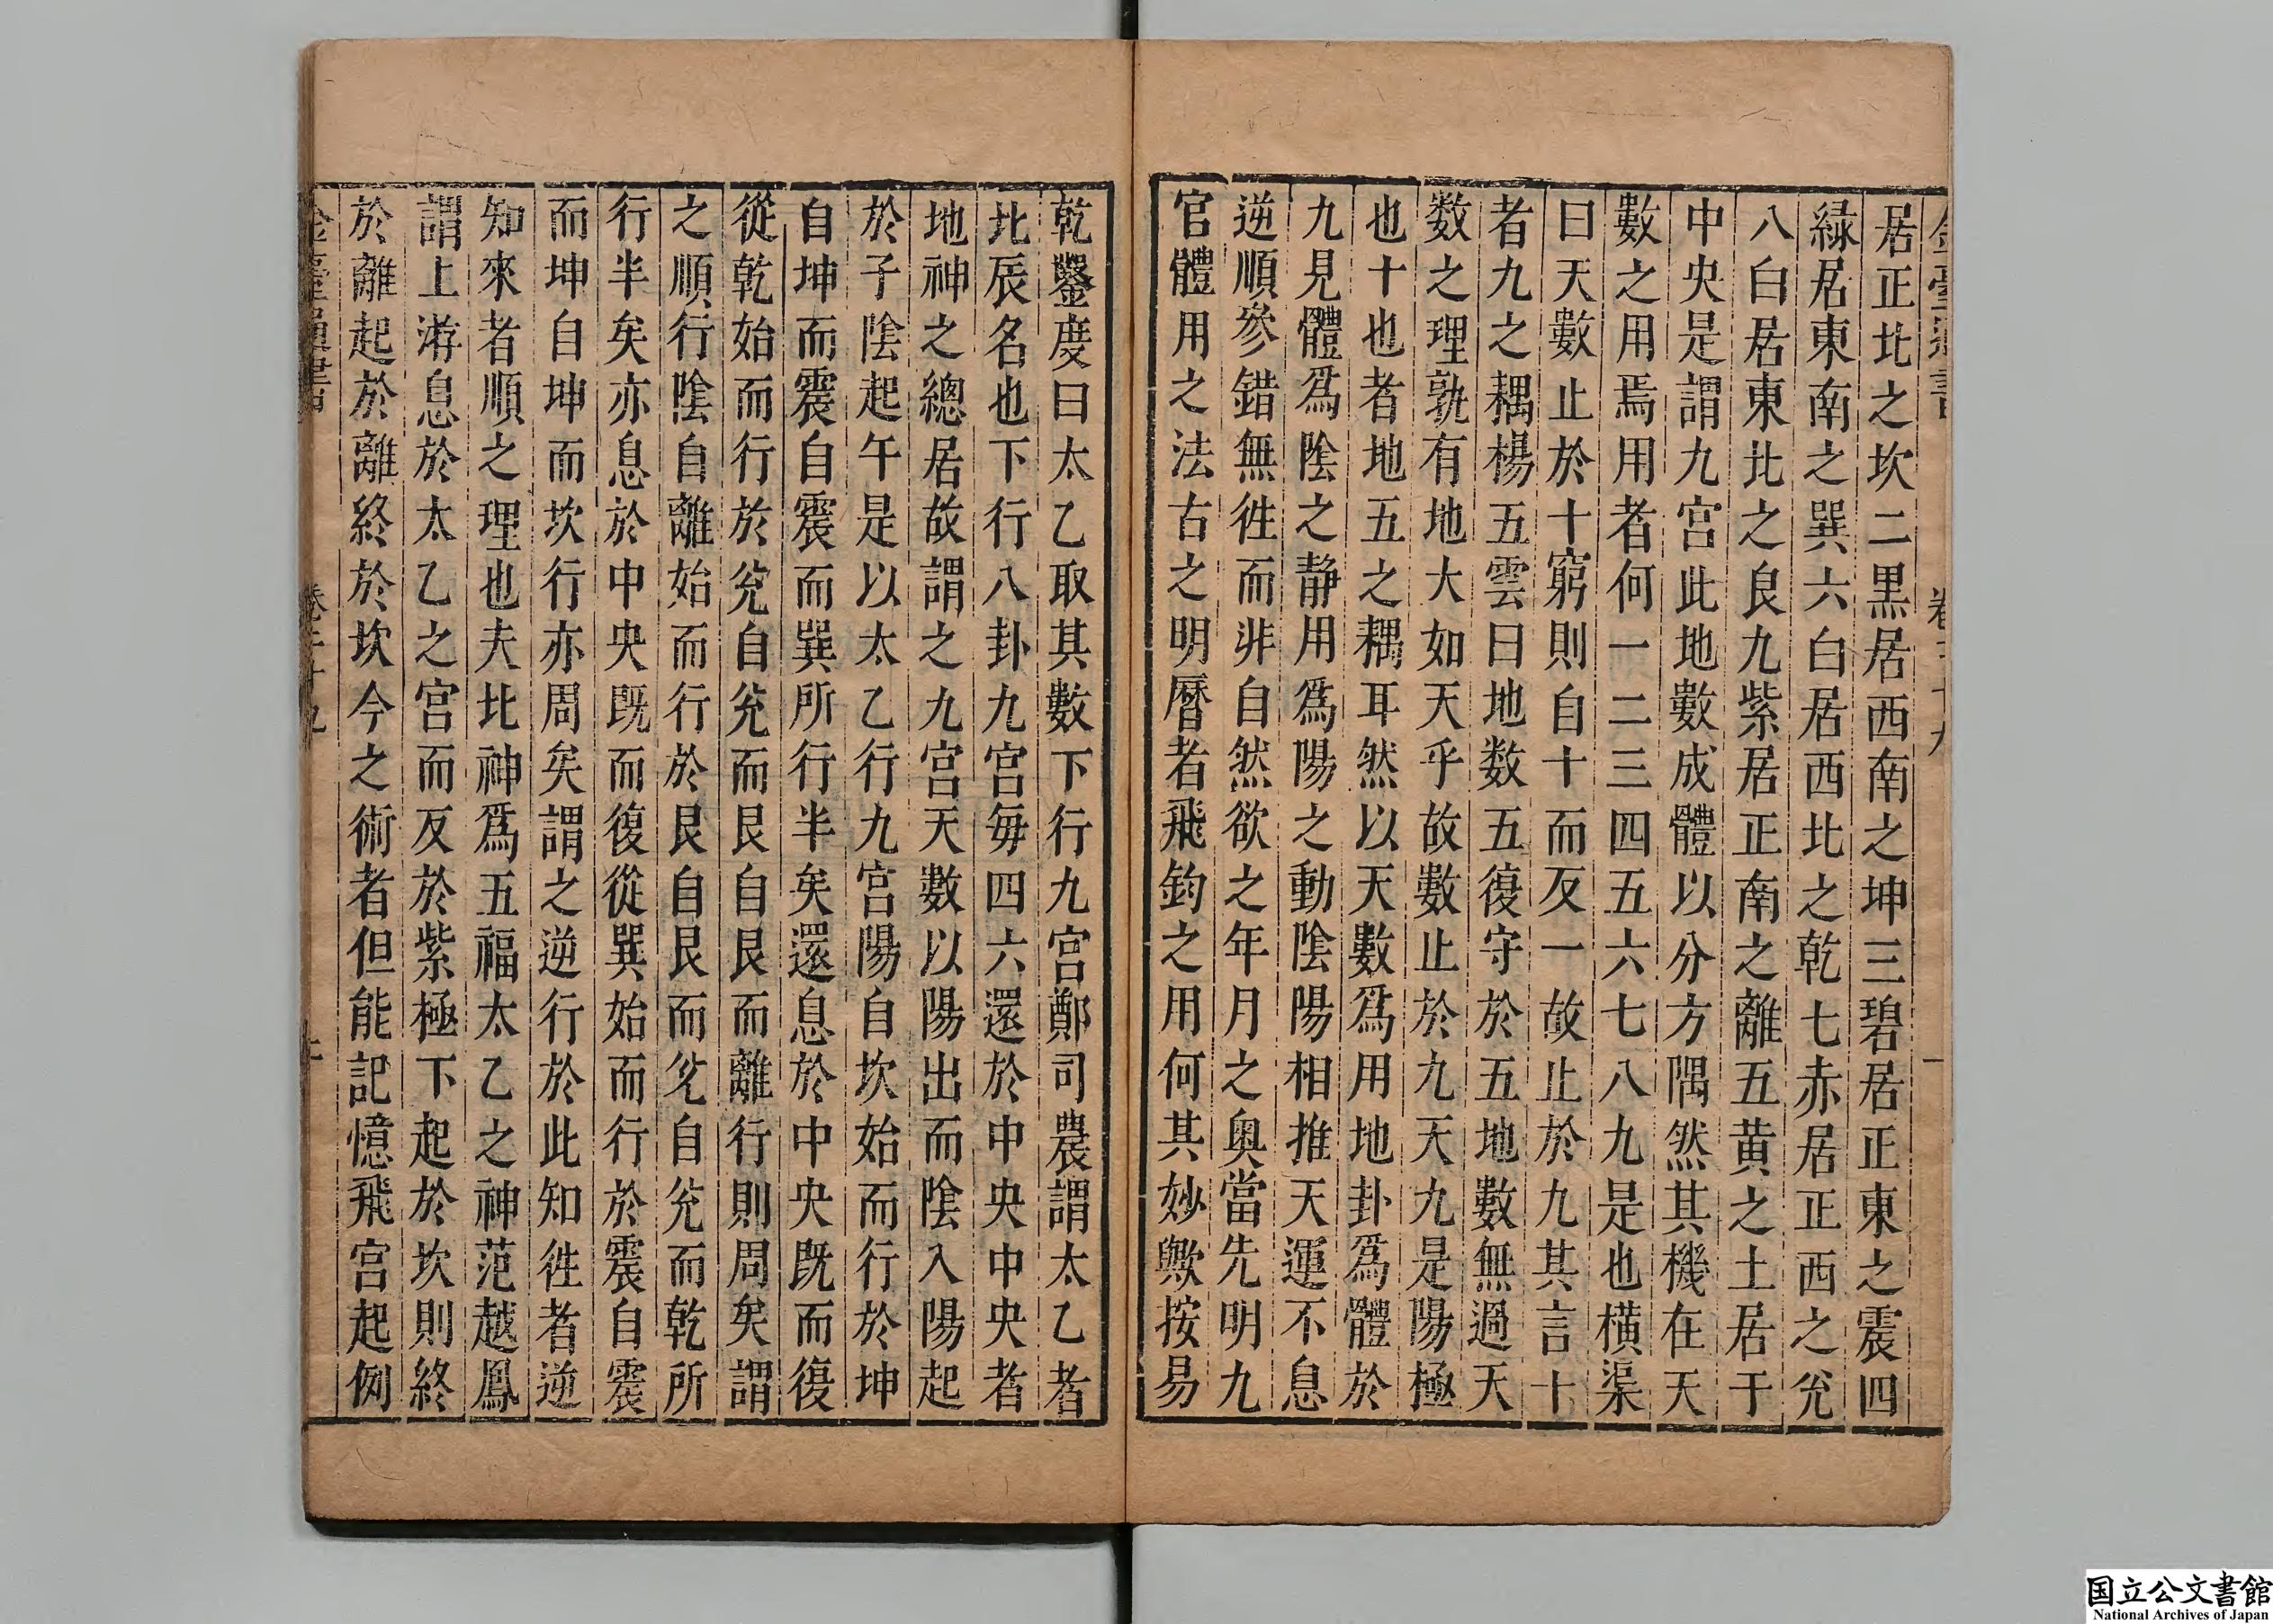 居正北之坎二黒居西南之坤三碧居正東之震四
緑居東南之巽六白居西北之乾七赤居正西之兊
八白居東北之艮九紫居正南之離五黄之土居于
中央是謂九宮此地數成體以分方隅然其機在天
數之用焉用者何一二三四五六七八九是也横渠
曰天數止於十窮則自十而反一故止於九其言十
者九之耦楊五雲曰地数五復守於五地數無過天
数之理孰有地大如天乎故數止於九天九是陽極
也十也者地五之耦耳然以天數爲用地卦爲體於
九見體爲陰之静用爲陽之動陰陽相推天運不息
逆順參錯無徃而非自然欲之年月之奥當先明九
官體用之法古之明暦者飛鈞之用何其妙歟按易
乾鑿度曰太乙取其數下行九宮鄭司農謂太乙者
北辰名也下行八卦九宮毎四六還於中央中央者
地神之總居故謂之九宮天數以陽出而陰入陽起
於子陰起午是以太乙行九宮陽自坎始而行於坤
自坤而震自震而巽所行半矣還息於中央既而復
從乾始而行於兊自兊而艮自艮而離行則周矣謂
之順行陰自離始而行於艮自艮而兊自兊而乾所
行半矣亦息於中央既而復從巽始而行於震自震
而坤自坤而坎行亦周矣謂之逆行於此知徃者逆
知來者順之理也夫北神爲五福太乙之神范越鳳
謂上游息於太乙之宮而反於紫極下起於坎則終
於離起於離終於坎今之術者但能記憶飛宮起例
国立公文書館
National Archives of Japan